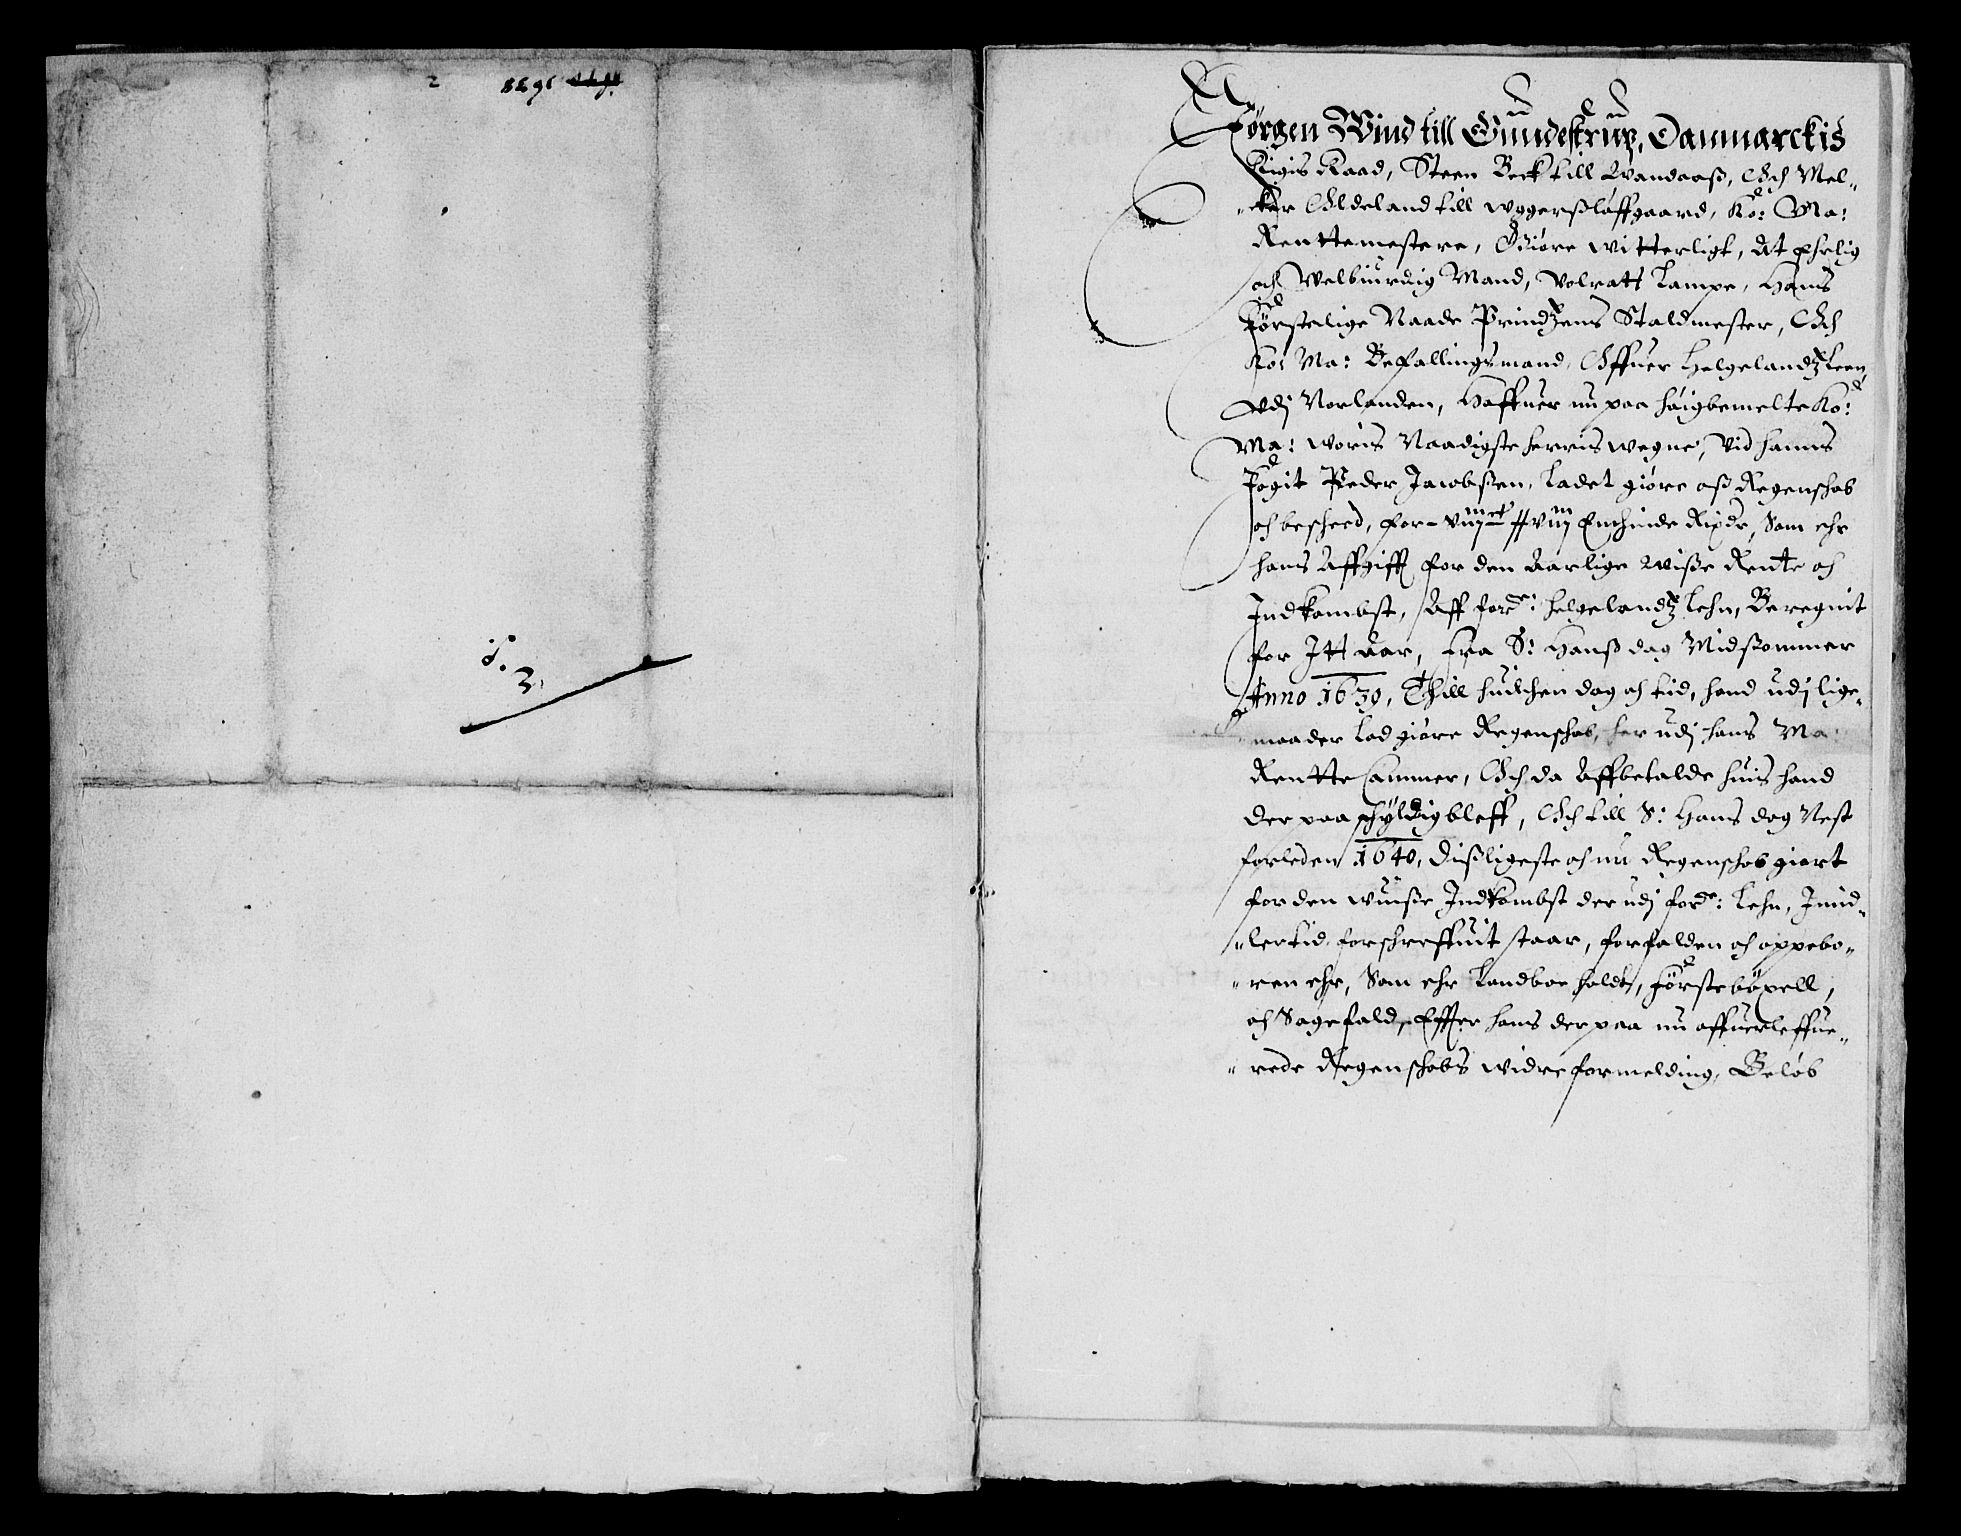 1638
2
3.
Jørgen Wind till Gundestrup, Danmarckis
Rigis Raad, Steen Beck till Wandaaß, Och Mel„
„ker Oldeland till Wggerßløffgaard, Ko: Ma:
Renttemestere, Giøre witterligt, At Ehrlig
och Welbiurdig Mand, Volratt Lampe, Hans
Førstelige Naade Prindzens Staldmester, Och
Ko: Ma: Befallingsmand, Offuer Helgelandz Leen,
Vdj Norlanden, Haffuer nu paa høigbemelte Ko:
Ma: woris Naadigste herris wegne, Vid hanns
Fogit Peder Jacobßen, Ladet giøre oß Regenschab
och bescheed, for Enchinde Rixdr, Som ehr
hans Affgifft for den Aarlige Wiße Rente och
Indkombst, Aff forne: Helgelandz Lehn, Beregnit
for Itt Aar, fra S: Hanß dag Midßommer
Anno 1639, Thill huilchen dag och tid, hand udj lige„
„maader Lod giøre Regenschab, her udj hans Ma:
Rentte Cammer, Och da Affbetalde huis hand
der paa schyldig bleff, Och till S: Hans dag Nest
forleden 1640, Dißligeste och nu Regenschab giort
for den wuiße Indkombst der udj forne: Lehn, Imid„
„lertid forschreffuit staar, forfalden och oppebo„
„ren ehr, Som ehr Landboe holdt, Førstebøxell,
och Sagefald, Effter hans der paa nu offuerleffue„
„rede Regenschabs widre formelding, Beløb